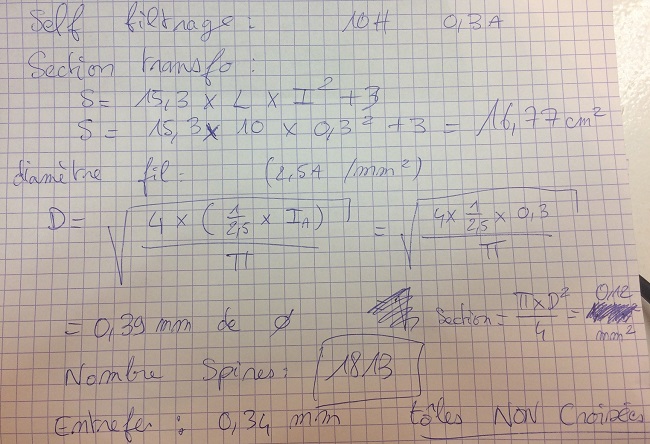 Self filtrage: 10H 0,3A
Section transfo:
S= 15,3 x L x I² + 3
S= 15,3 x 10 x 0,3² + 3 = 16,77 cm²
diamètre fil= (2,5A /mm²)
D= √(4 x (1/2,5 x I_A) / π) = √(4 x 1/2,5 x 0,3 / π)
= 0,39 mm de ϕ Section = π x D²/4 = 0,12 mm²
Nombre Spires: 1813
Entrefer: 0,34 mm tôles NON Croisées